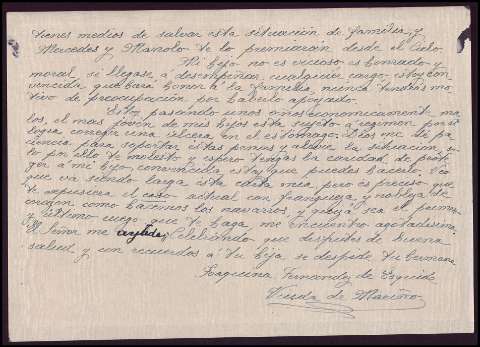 tienes medios de salvar esta situación de familia, y
Mercedes y Manolo te lo premiarán desde el Cielo
Mi hijo no es vicioso es honrado y
moral, si llegase a desempeñar cualquier cargo estoy con
vencida que hará honor a la familia, nunca tendrás mo
tivo de preocupación por haberlo apoyado.
Estoy pasando unos años económicamente ma
los, el más joven de mis hijos esta sujeto a regimen para si
logra corregir una úlcera en el estomago. Dios me dé pa
ciencia para soportar estas penas y alivie la situación, si
to por ello te molesto y espero tengas la caridad de prote
ger a mi hijo, convencida estoy que puedes hacerlo. Veo
que va siendo larga esta carta mia, pero es preciso que
te expusiera el caso actual con franqueza y nobleza de
corazón como hacemos los navarros, y quizá sea el primer
y último ruego que te haga, me encuentro agotadísima,
El Señor me ayude, Celebrando que disfrutes de buena
salud, y con recuerdos a tu hija se despide tu hermana
Joaquina Fernández de Ezquide
Viuda de Mariñro